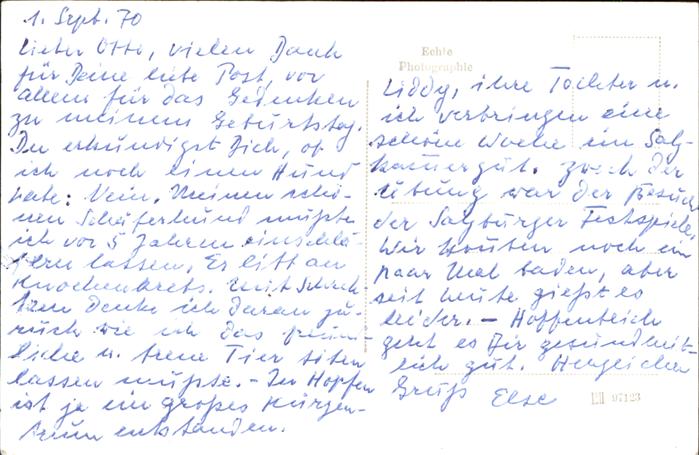 1. Sept. 70
Lieber Otto, vielen Dank
für Deine liebe Post, vor
allem für das Gedenken
zu meinem Geburtstag.
Du erkundigst Dich, ob
ich noch einen Hund
habe: Nein. Meinen schö-
nen Schäferhund mußte
ich vor 5 Jahren einschlä-
fern lassen. Er litt an
Knochenkrebs. Mit Schrek-
ken denke ich daran zu-
rück wie ich das freund-
liche u. treue Tier töten
lassen mußte. - In Hopfen
ist ja ein großes Kurzen-
trum entstanden.
Echte
Photographie
Liddy, ihre Tochter u.
ich verbringen eine
schöne Woche im Salz-
kammergut. Zweck der
Übung war der Besuch
der Salzburger Festspiele.
Wir konnten noch ein
paar Mal baden, aber
seit heute gießt es
leider. - Hoffentlich
geht es Dir gesundheit-
lich gut. Herzlichen
Gruß Else
97123